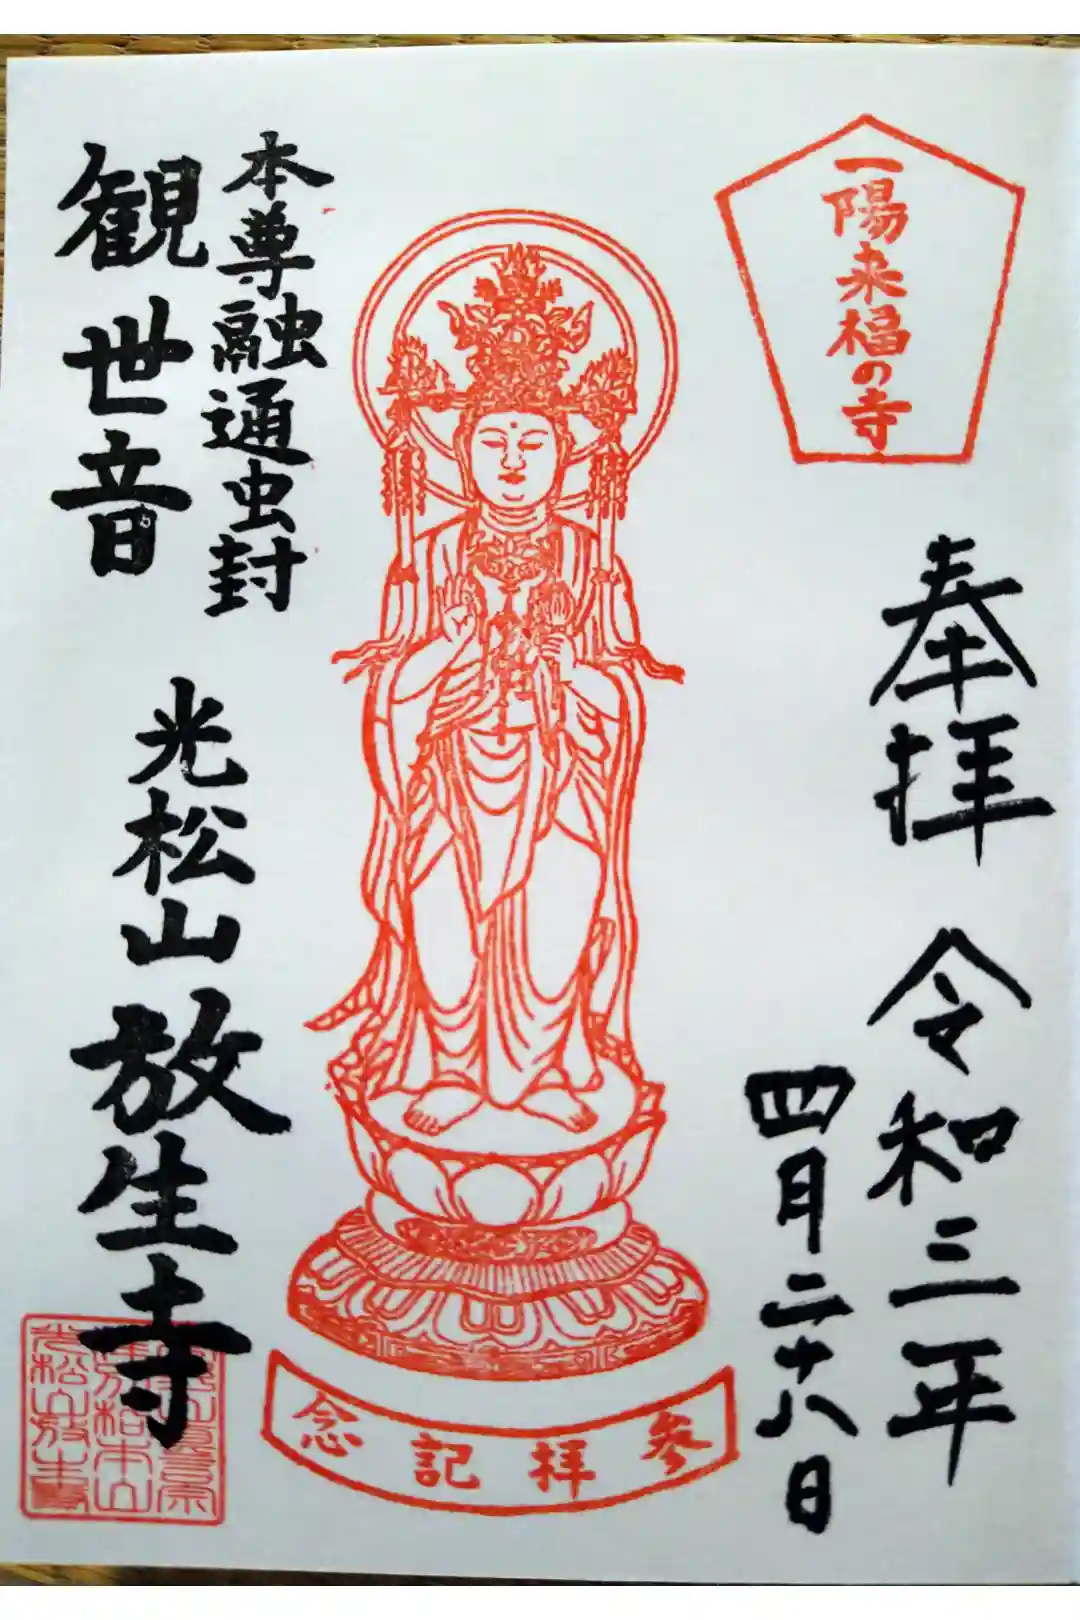 一陽来福の寺
奉拝 令和三年
四月二十八日
参拝記念
本尊融通虫封
観世音
光松山放生寺